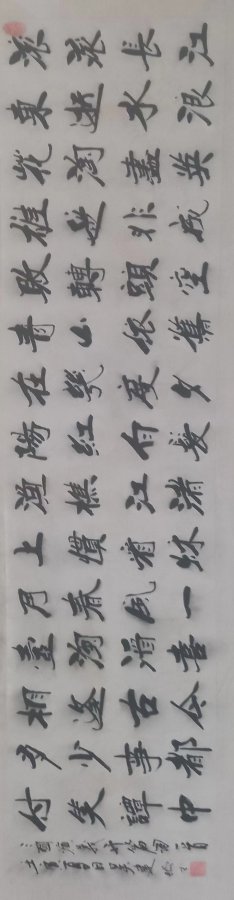 滚滚長江
東逝水浪
花淘盡英
雄是非成
敗轉頭空
青山依舊
在幾度夕
陽紅白髮
漁樵江渚
上慣看秋
月春風一
壺濁酒喜
相逢古今
多少事都
付笑譚中
三國演義開篇詞一首
壬寅夏日